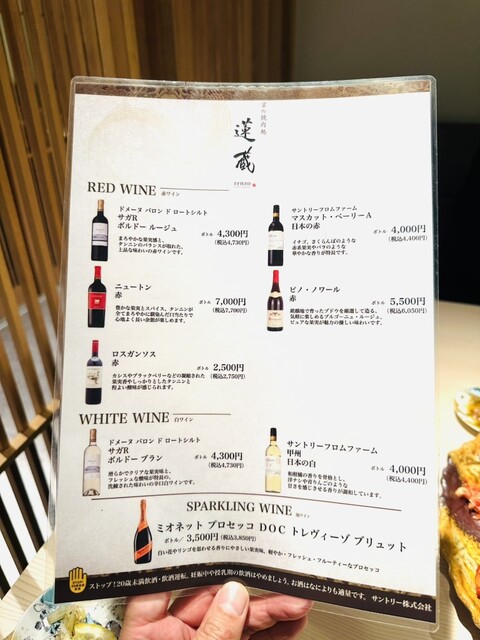 京の焼肉処
蓮蔵
RED WINE 赤ワイン
ドメーヌ バロン ド ロートシルト
サガR
ボルドー ルージュ
ボトル 4,300円
(税込4,730円)
まろやかな果実感と、
タンニンのバランスが取れた、
上品な味わいの赤ワインです。
サントリーフロムファーム
マスカット・ベーリーA
日本の赤
ボトル 4,000円
(税込4,400円)
イチゴ、さくらんぼのような
赤系果実やバラのような
華やかな香りが特長です。
ニュートン
赤
ボトル 7,000円
(税込7,700円)
豊かな果実とスパイス、タンニンが
全てまろやかに溶込んだ口当たりで
心地よく長い余韻が楽しめます。
ピノ・ノワール
赤
ボトル 5,500円
(税込6,050円)
銘醸地で育ったブドウを厳選して造る、
気軽に楽しめるブルゴーニュ・ルージュ。
ピュアな果実が魅力の優しい味わいです。
ロスガンソス
赤
ボトル 2,500円
(税込2,750円)
カシスやブラックベリーなどの凝縮された
果実香やしっかりとしたタンニンと
程よい酸味が感じられます。
WHITE WINE 白ワイン
ドメーヌ バロン ド ロートシルト
サガR
ボルドー ブラン
ボトル 4,300円
(税込4,730円)
滑らかでクリアな果実味と、
フレッシュな酸味が特長の、
洗練された味わいの辛口白ワインです。
サントリーフロムファーム
甲州
日本の白
ボトル 4,000円
(税込4,400円)
和柑橘の香りを骨格とし、
洋ナシや青りんごのような
甘さを感じさせる香りが調和しています。
SPARKLING WINE
ミオネット プロセッコ DOC トレヴィーゾ ブリュット
ボトル/ 3,500円(税込3,850円)
白い花やリンゴを思わせる香りにやさしい果実味、軽やか・フレッシュ・フルーティーなプロセッコ
ストップ!20歳未満飲酒・飲酒運転。妊娠中や授乳期の飲酒はやめましょう。お酒はなによりも適量です。 サントリー株式会社